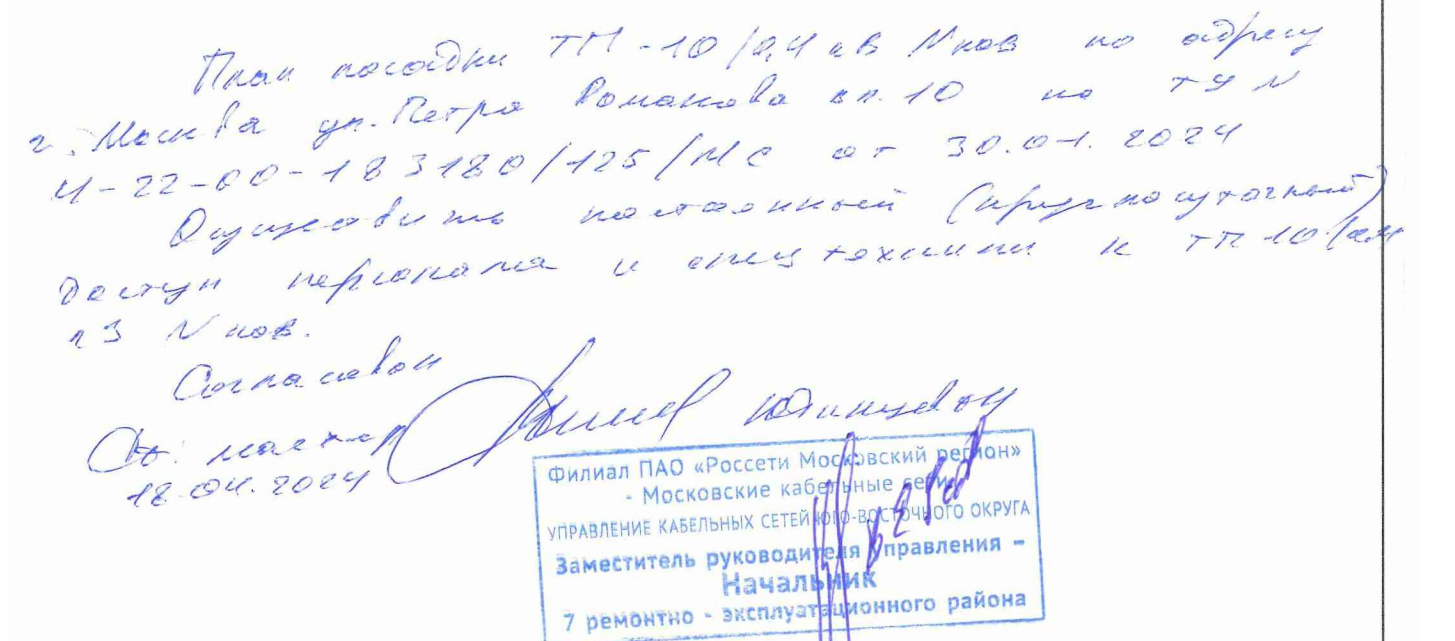 План посадки ТП-10/0,4 кВ Nнов по адресу
г. Москва ул. Петра Романова вл. 10 по ТУ N
И-22-00-183180/125/МС от 30.01.2024
постоянный (круглосуточный)
доступ персонала и спецтехники к ТП 10/
N нов.
Согласован
Ст. мастер
18.04.2024
Филиал ПАО «Россети Московский регион»
- Московские кабельные сети
УПРАВЛЕНИЕ КАБЕЛЬНЫХ СЕТЕЙ ЮГО-ВОСТОЧНОГО ОКРУГА
Заместитель руководителя управления –
Начальник
7 ремонтно - эксплуатационного района